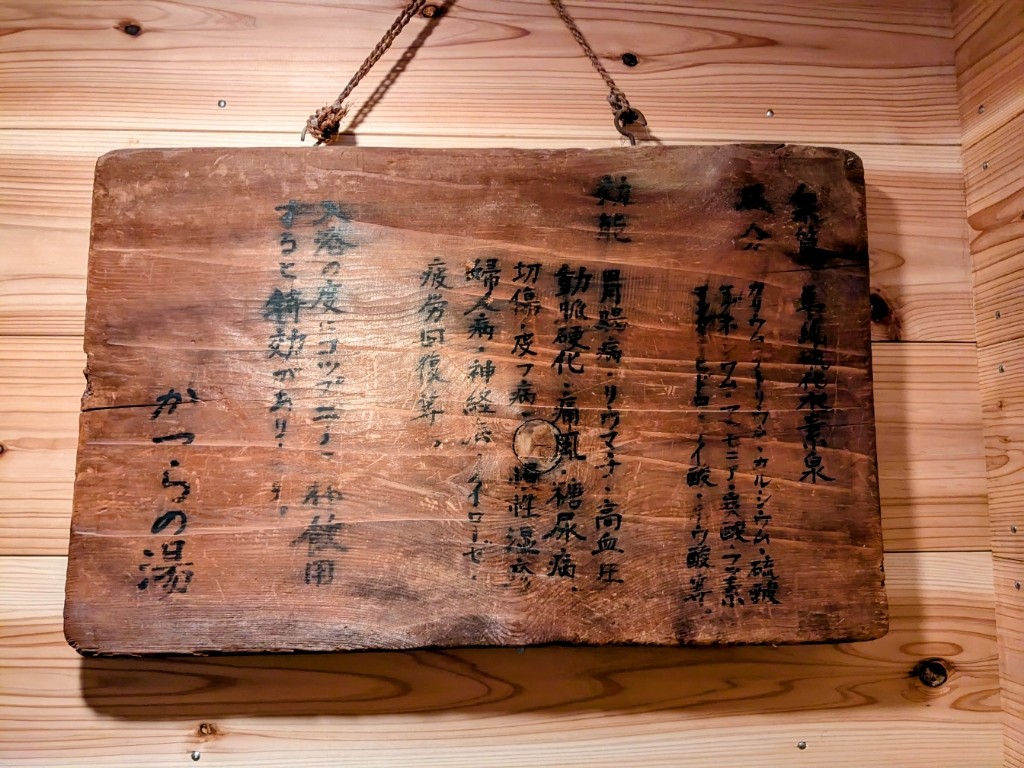 泉質 単純硫化水素泉
成分 カリウム・ナトリウム・カルシウム・硫酸
炭酸・フッ素
ケイ酸・ホウ酸等。
効能 胃腸病・リウマチ・高血圧
動脈硬化・痛風・糖尿病・
切傷・皮フ病・慢性湿疹
婦人病・神経・ノイローゼ・
疲労回復等。
入浴の度にコップ二・三杯飲用
すると特効があります。
かつらの湯